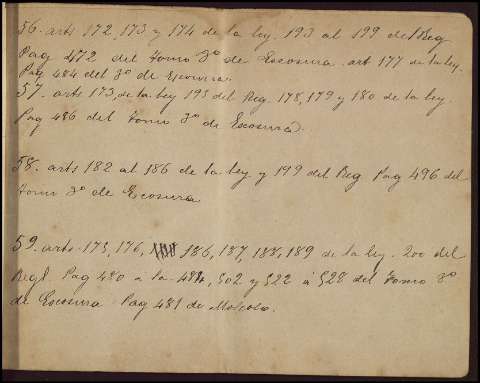 56. arts 172, 173 y 174 de la ley. 193 al 199 del Reg
Pag 472 del tomo 3º de Escosura. art 177 de la ley.
Pag 484 del 3º de Escosura.
57. arts 173, de la ley 195 del Reg. 178, 179 y 180 de la ley.
Pag 486 del tomo 3º de Escosura.
58. arts 182 al 186 de la ley y 199 del Reg Pag 496 del
tomo 3º de Ecosura
59. arts 175, 176, 186, 187, 188, 189 de la ley. 200 del
Regl Pag 480 a la 484, 502 y 522 á 528 del tomo 3º
de Escosura Pag 481 de